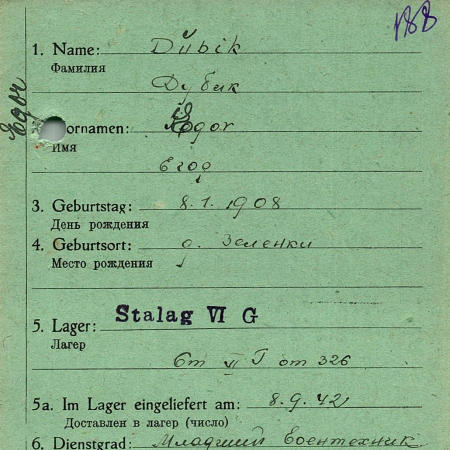 188
1. Name: Dübik
Фамилия
Дубик
Egor
Vornamen: Egor
Имя
Егор
3. Geburtstag: 8.1.1908
День рождения
4. Geburtsort: с. Зеленки
Место рождения
5. Lager: Stalag VI G
Лагерь
VI от 326
5a. Im Lager eingeliefert am: 8.9.42
Доставлен в лагер (число)
6. Dienstgrad: Младший воентехник